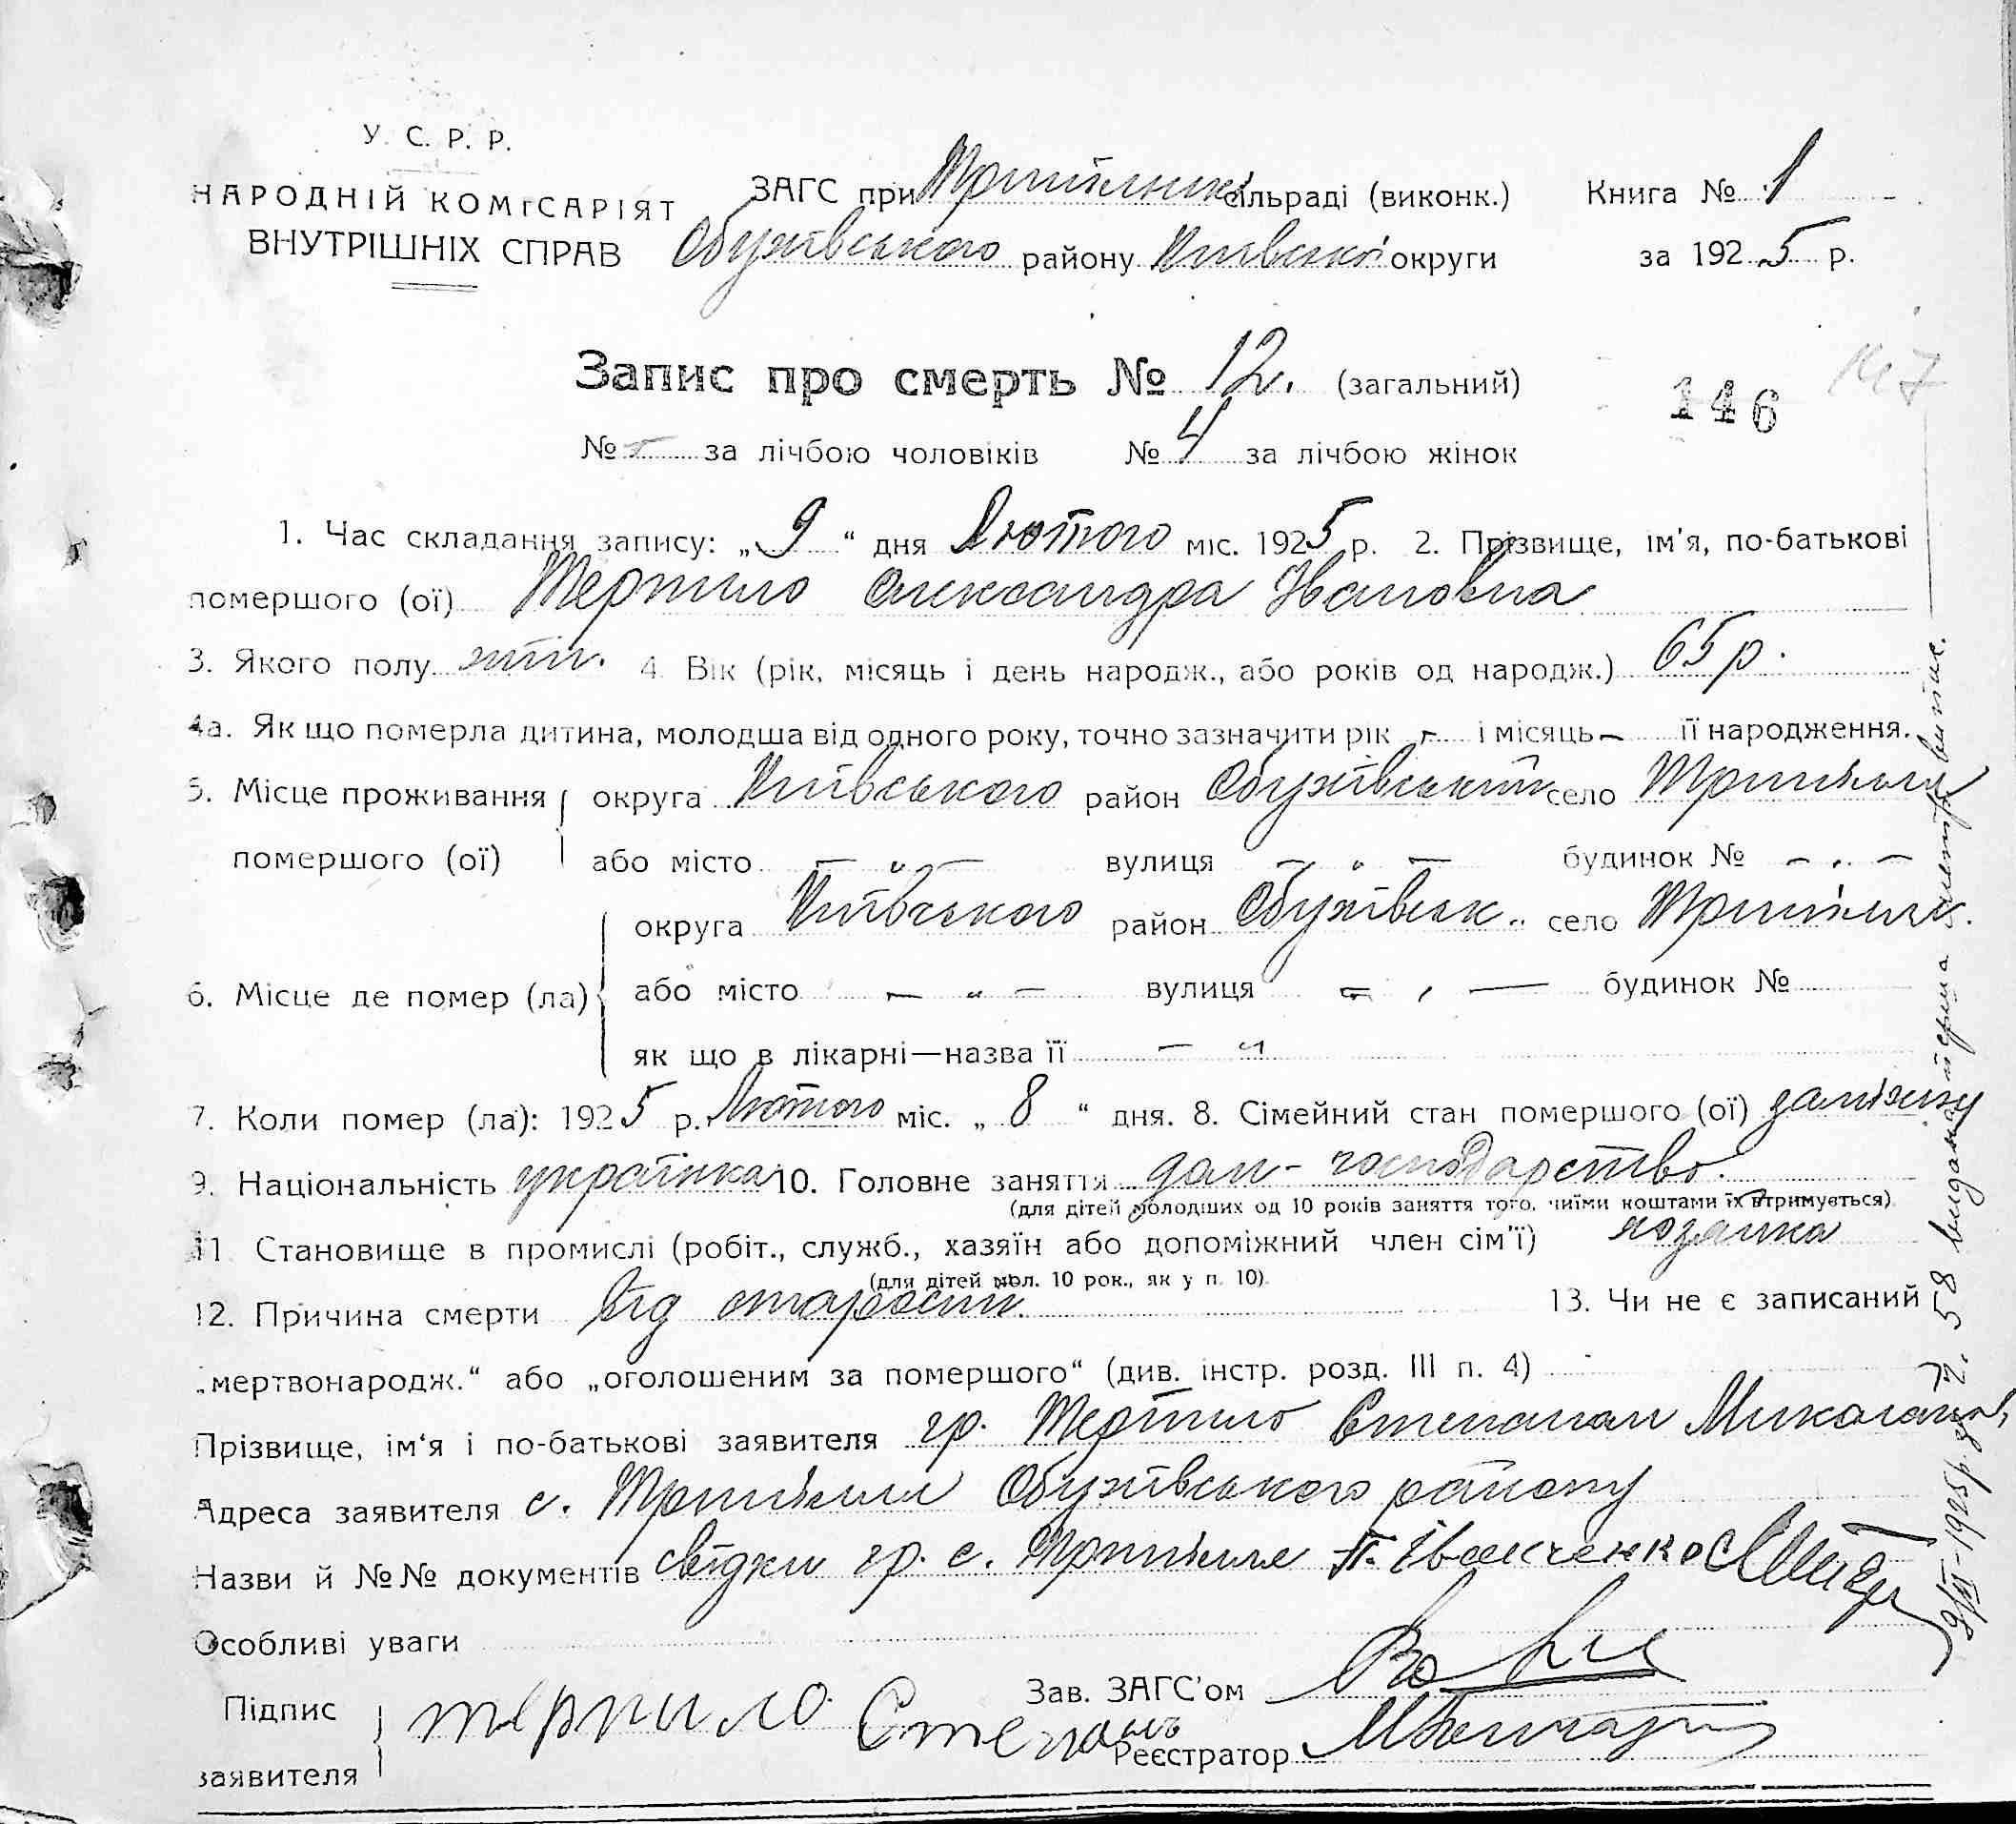 У. С. Р. Р.
НАРОДНІЙ КОМІСАРІЯТ
ВНУТРІШНІХ СПРАВ
ЗАГС при Трипільскі сільраді (виконк.) Книга № 1
Обухівського району Київської округи за 1925 р.
Запис про смерть № 12. (загальний)
146 147
№ - за лічбою чоловіків № 4 за лічбою жінок
1. Час складання запису: „9“ дня Лютого міс. 1925 р. 2. Прізвище, ім'я, по-батькові
помершого (ої) Терпило Александра Івановна
3. Якого полу жін. 4. Вік (рік, місяць і день народж., або років од народж.) 65 р.
4а. Як що померла дитина, молодша від одного року, точно зазначити рік - і місяць - її народження.
5. Місце проживання округа Київського район Обухівський село Трипілля
помершого (ої) або місто — „ — вулиця — „ — будинок № — „ —
округа Київського район Обухівськ. село Трипілля.
6. Місце де помер (ла) або місто — „ — вулиця — „ — будинок №
як що в лікарні—назва її — „
7. Коли помер (ла): 1925 р. Лютого міс. „8“ дня. 8. Сімейний стан помершого (ої) заміжня
9. Національність українка 10. Головне заняття дом-господарство.
(для дітей молодших од 10 років заняття того, чиїми коштами їх втримується)
11. Становище в промислі (робіт., служб., хазяїн або допоміжний член сім'ї) хозяйка
(для дітей мол. 10 рок., як у п. 10).
12. Причина смерти Від старости. 13. Чи не є записаний
„мертвонародж.“ або „оголошеним за помершого“ (див. інстр. розд. III п. 4) -
Прізвище, ім'я і по-батькові заявителя гр. Терпило Степаном
Адреса заявителя с. Трипілля Обухівського району
Назви й №№ документів свідки гр. с. Трипілля П. Іващенко
Особливі уваги
Підпис
заявителя Терпило Степанъ
Зав. ЗАГС'ом
Реєстратор
9/II-1925 р. за ч. 58 видана перша